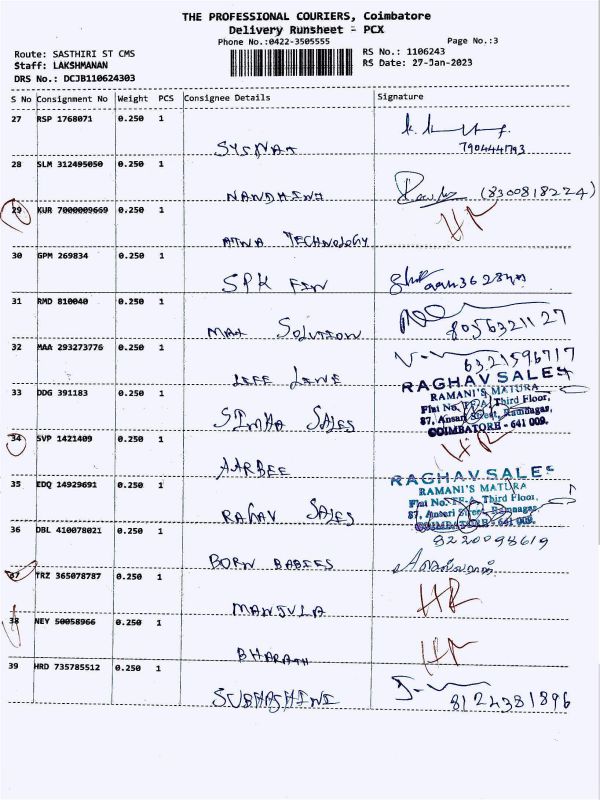 THE PROFESSIONAL COURIERS, Coimbatore
Delivery Runsheet - PCX
Phone No.:0422-3505555
Page No.:3
Route: SASTHIRI ST CMS
RS No.: 1106243
Staff: LAKSHMANAN
RS Date: 27-Jan-2023
DRS No.: DCJB110624303
S No Consignment No Weight PCS Consignee Details Signature
27 RSP 1768071 0.250 1
SYSNAT
28 SLM 312495050 0.250 1
NANDHINI (8300818224)
29 KUR 7000009669 0.250 1 HR
ATNA TECHNOLOGY
30 GPM 269834 0.250 1
SPK FIN
31 RMD 810040 0.250 1
MAX SOLUTION 8056321127
32 MAA 293273776 0.250 1
LIFE LINE 6321596717
33 DDG 391183 0.250 1
SIMHA SALES
RAGHAV SALES
RAMANI'S MATURA
Flat No. FF-A, Third Floor,
87, Ansari Street, Ramnagar,
COIMBATORE - 641 009.
34 SVP 1421409 0.250 1 HR
AARBEE
35 EDQ 14929691 0.250 1
RAGAV SALES
RAGHAV SALES
RAMANI'S MATURA
Flat No. FF-A, Third Floor,
87, Ansari Street, Ramnagar,
COIMBATORE - 641 009.
36 DBL 410078021 0.250 1 8220098619
BORN BABIES
37 TRZ 365078787 0.250 1 HR
MANJULA
38 NEY 50058966 0.250 1 HR
BHARATH
39 HRD 735785512 0.250 1
SUBHASHINI 8124381896